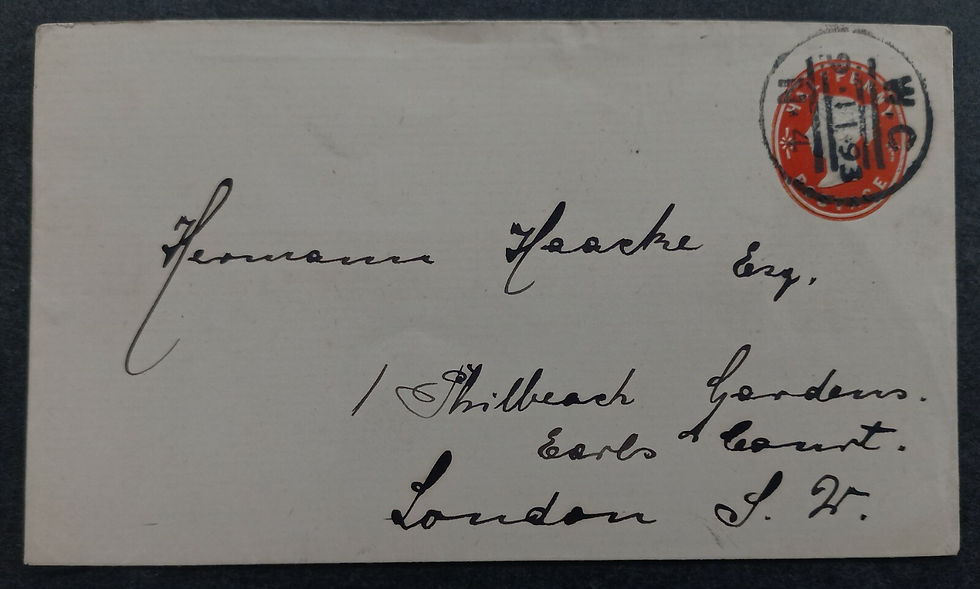 W.C
11 93
4
POSTAGE
Hermann Haacke Esq.
1 Philbeach Gardens.
Earls Court.
London S. W.